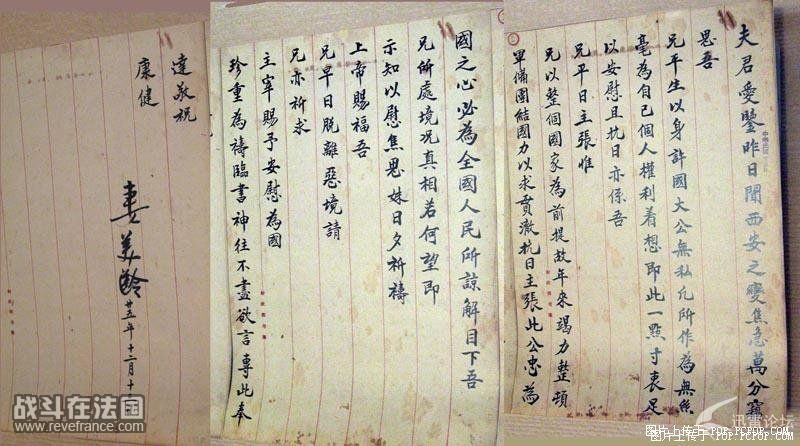 夫君愛鑒昨日聞西安之變焦急萬分竊
思吾
兄平生以身許國大公無私凡所作為無絲
毫為自己個人權利着想即此一點寸衷足
以安慰且抗日亦係吾
兄平日主張惟
兄以整個國家為前提故年來竭力整頓
軍備團結國力以求貫澈抗日主張此公忠為
國之心必為全國人民所諒解目下吾
兄所處境況真相若何望即
示知以慰焦思妹日夕祈禱
上帝賜福吾
兄早日脫離惡境請
兄亦祈求
主宰賜予安慰為國
珍重為禱臨書神往不盡欲言專此奉
達敬祝
康健
妻美齡
廿五年十二月十
战斗在法国
www.revefrance.com
迅雷论坛
图片上传于PCPOP.COM